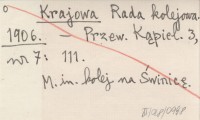 Krajowa Rada kolejowa.
1906. – Przew. Kąpiel. 3,
nr 7: 111.
M. in. kolej na Świnicę.